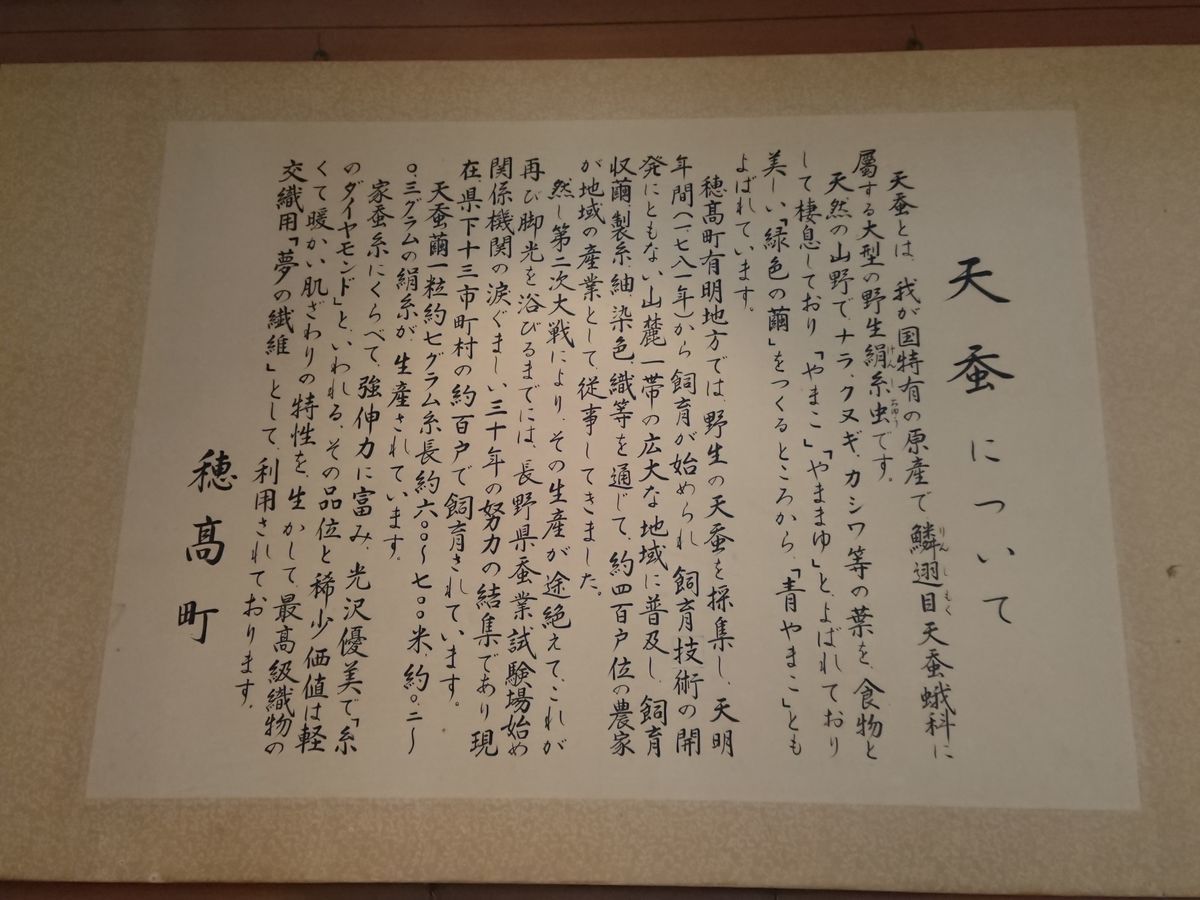 天蚕について
天蚕とは、我が国特有の原産で鱗翅目天蚕蛾科に
りんしもく
屬する大型の野生絹糸虫です。
けんしちゅう
天然の山野で、ナラ、クヌギ、カシワ等の葉を、食物と
して棲息しており「やまこ」「やままゆ」とよばれており
美しい「緑色の繭」をつくるところから、「青やまこ」とも
よばれています。
穂髙町有明地方では、野生の天蚕を採集し、天明
年間(一七八一年)から飼育が始められ飼育技術の開
発にともない山麓一帯の広大な地域に普及し、飼育
収繭、製糸紬、染色、織等を通じて、約四百戸位の農家
が地域の産業として、従事してきました。
然し第二次大戦により、その生産が途絶えて、これが
再び脚光を浴びるまでには、長野県蚕業試験場始め
関係機関の涙ぐましい三十年の努力の結集であり現
在、県下十三市町村の約百戸で飼育されています。
天蚕繭一粒約七グラム糸長約六〇〇〜七〇〇米、約〇.二〜
〇.三グラムの絹糸が、生産されています。
家蚕糸にくらべて、強伸力に富み、光沢優美で「糸
のダイヤモンド」と、いわれる、その品位と稀少価値は軽
くて暖かい肌ざわりの特性を、生かして、最高級織物の
交織用「夢の繊維」として、利用されております。
穂髙町